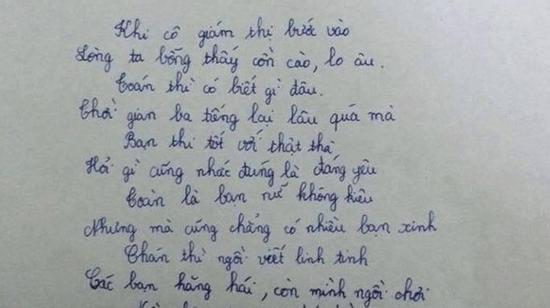 Khi cô giám thị bước vào
Lòng ta bỗng thấy cồn cào, lo âu.
Toán thì có biết gì đâu.
Thời gian ba tiếng lại lâu quá mà
Bạn thi tốt với thật thà
Hỏi gì cũng nhắc đúng là đáng yêu
Toàn là bạn nữ không kiêu
Nhưng mà cũng chẳng có nhiều bạn xinh
Chán thì ngồi viết linh tinh
Các bạn hăng hái, còn mình ngồi chơi